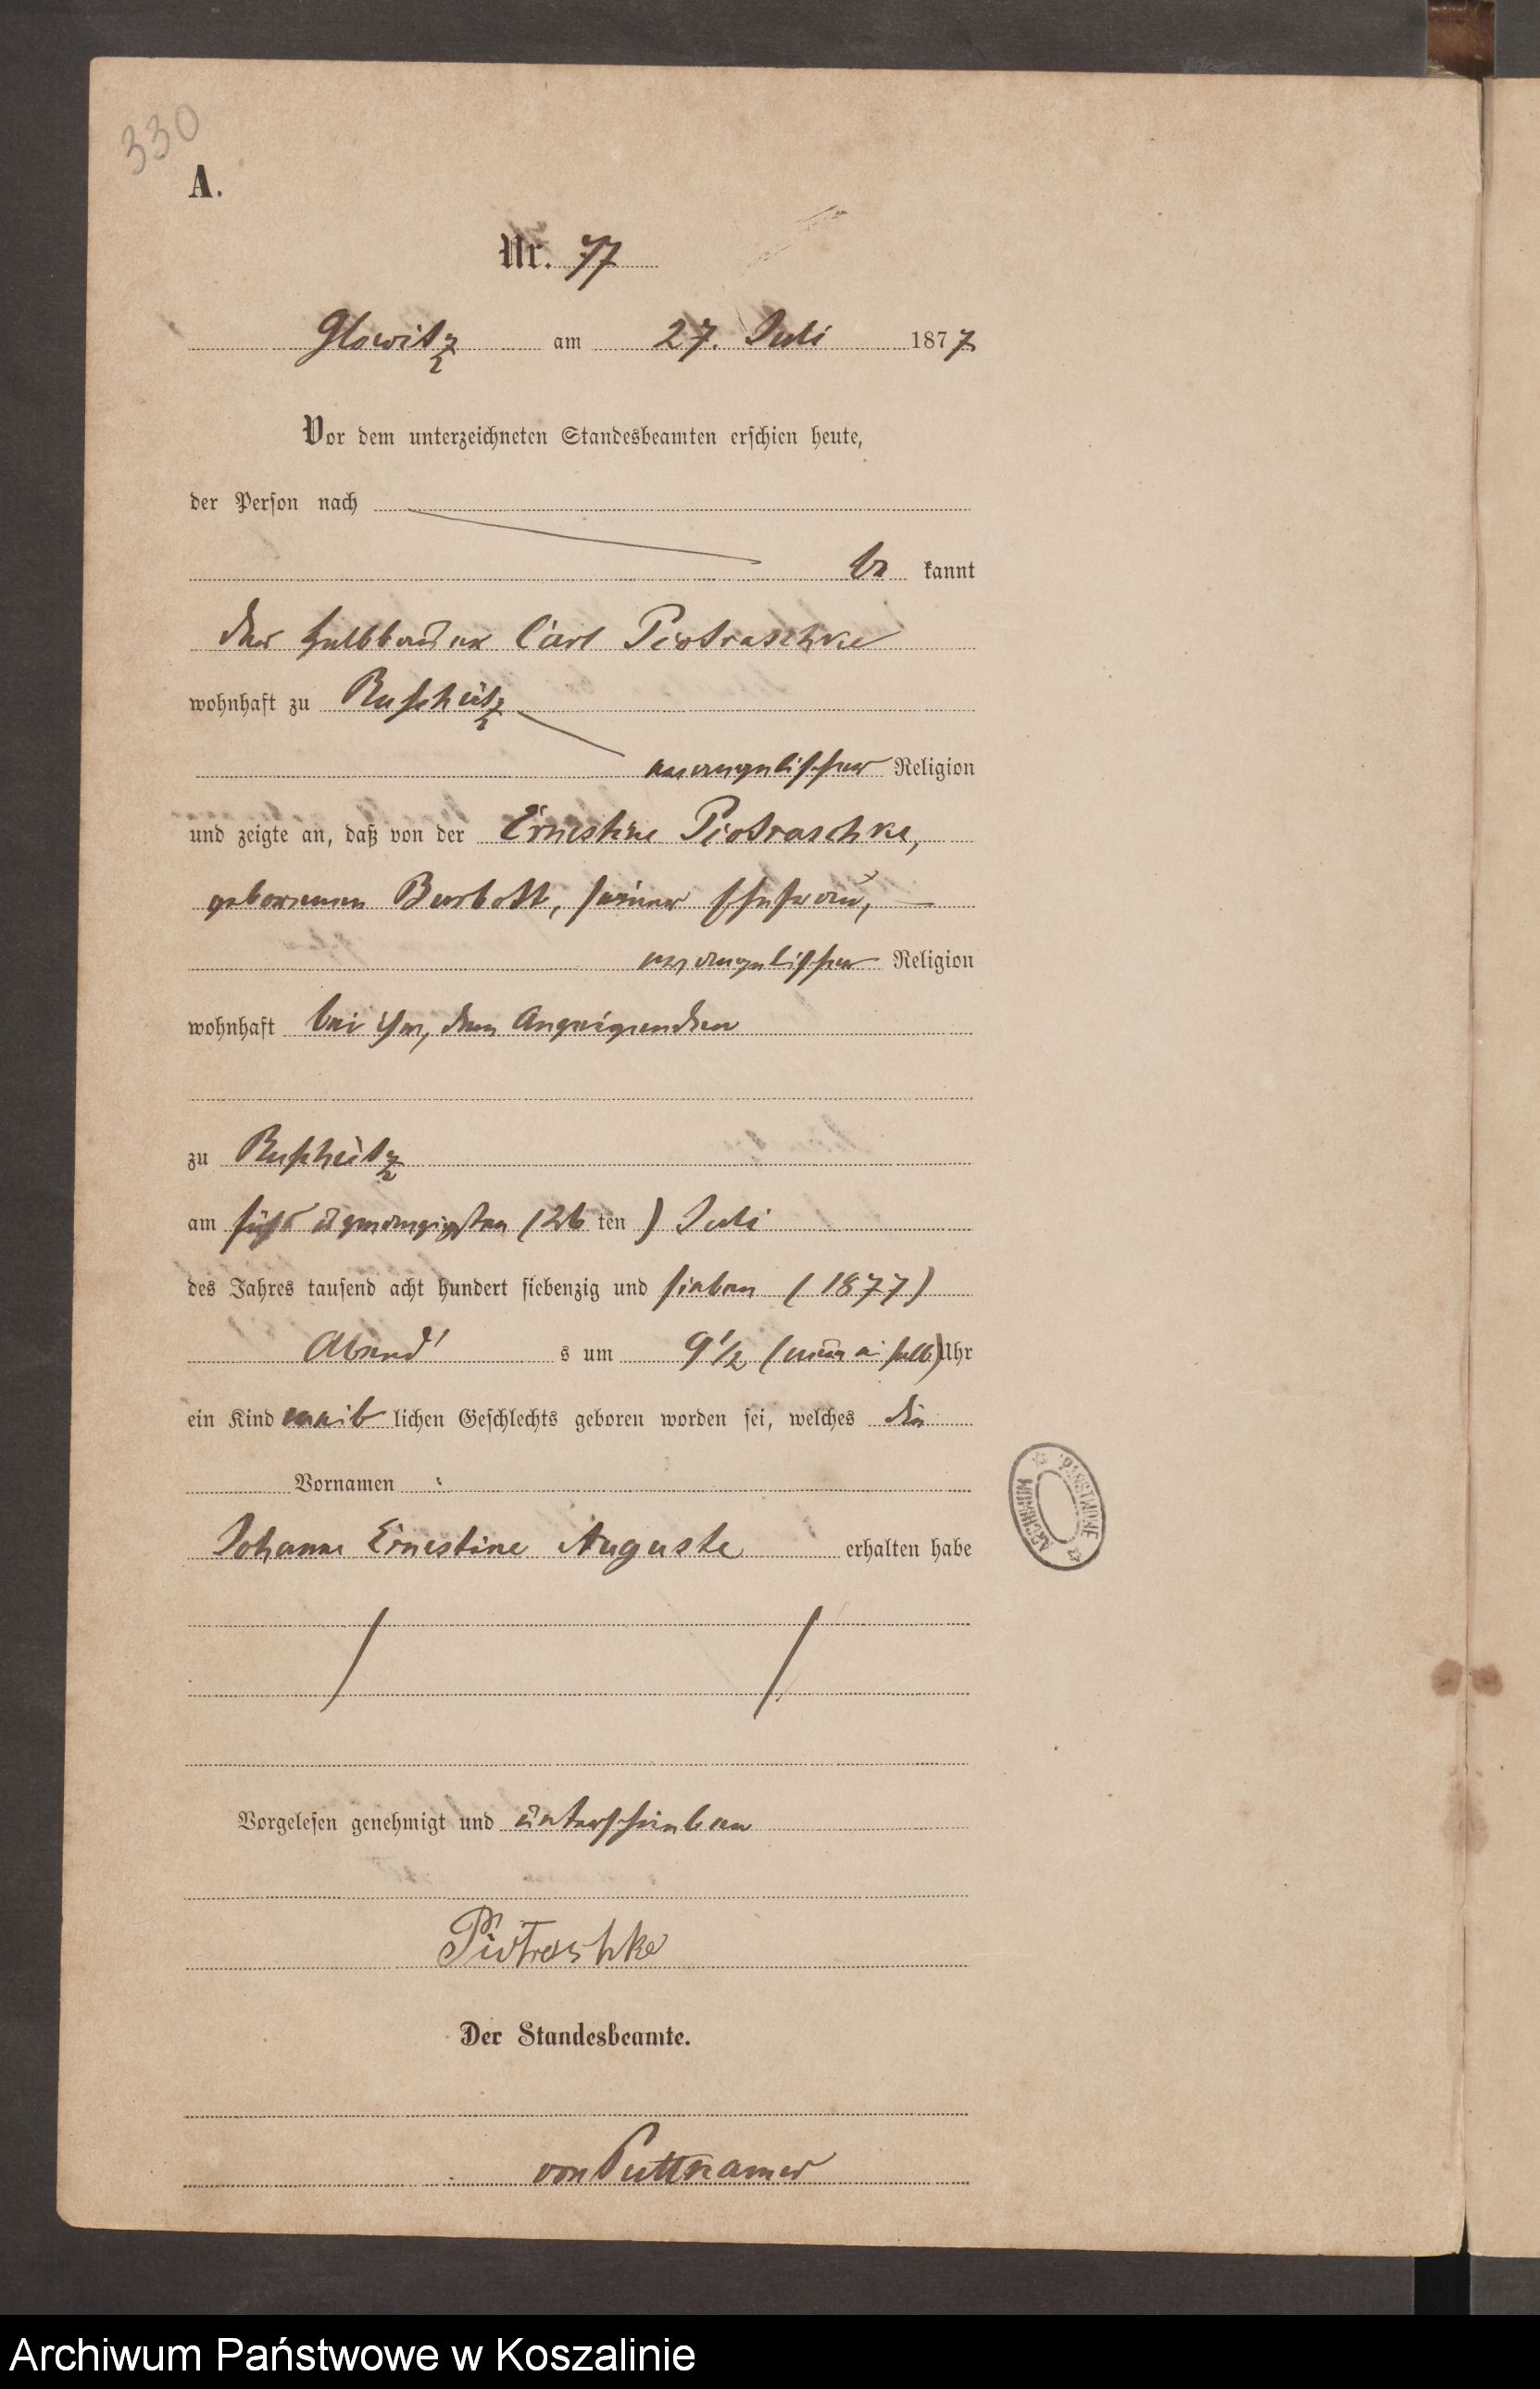 330
A.
Nr. 77
Glowitz am 27. Juli 1877
Vor dem unterzeichneten Standesbeamten erschien heute,
der Person nach
be kannt
der Halbbauer Carl Piotraschke
wohnhaft zu Ruschütz
evangelischer Religion
und zeigte an, daß von der Ernestine Piotraschke,
geborenen Barbott, seiner Ehefrau,
evangelischer Religion
wohnhaft bei ihm, dem Anzeigenden
zu Ruschütz
am sechs u zwanzigsten (26 ten) Juli
des Jahres tausend acht hundert siebenzig und sieben (1877)
Abend s um 9½ (neun ein halb) Uhr
ein Kind weib lichen Geschlechts geboren worden sei, welches die
Vornamen :
Johanne Ernestine Auguste erhalten habe
Vorgelesen genehmigt und unterschrieben
Piotraschke
Der Standesbeamte.
von Puttkamer
ARCHIWUM PAŃSTWOWE
Archiwum Państwowe w Koszalinie